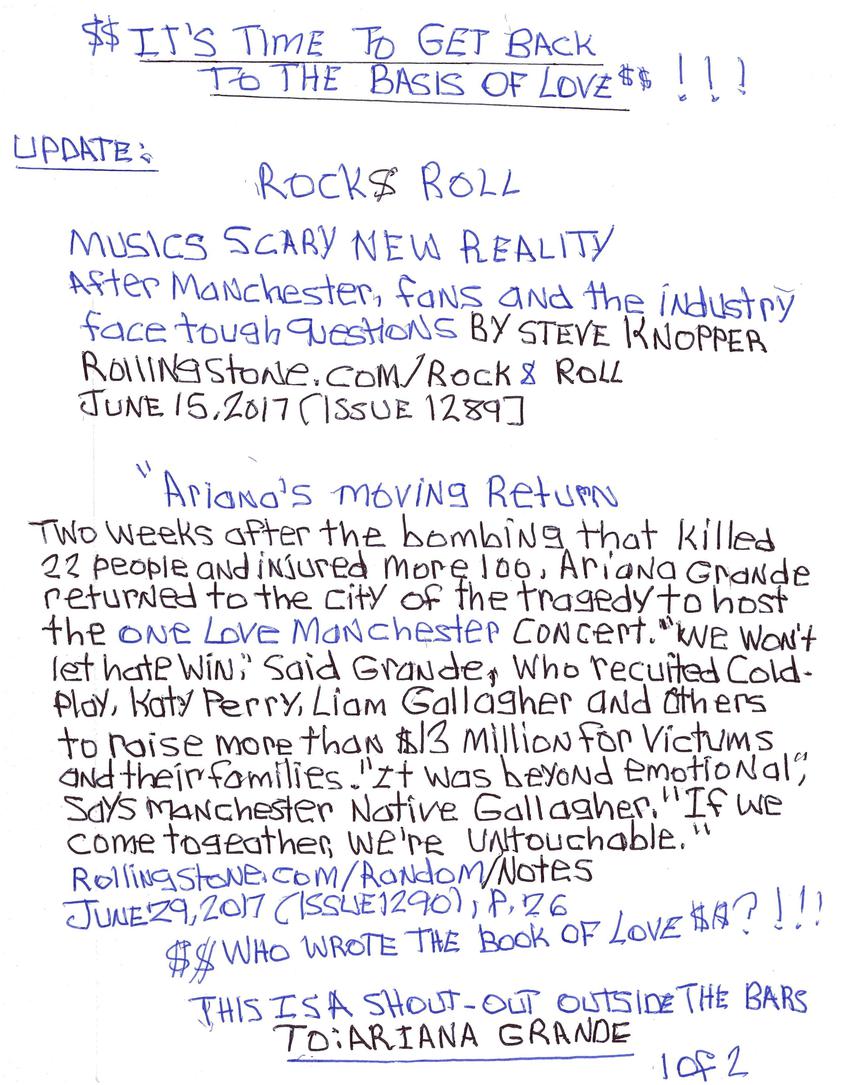 $$ IT'S TIME TO GET BACK
TO THE BASIS OF LOVE $$ !!!
UPDATE:
ROCK$ ROLL
MUSICS SCARY NEW REALITY
After Manchester, fans and the industry
face tough questions BY STEVE KNOPPER
Rollingstone.com/Rock & Roll
JUNE 15, 2017 [ISSUE 1289]
"Ariana's moving Return
Two weeks after the bombing that killed
22 people and injured more 100, Ariana Grande
returned to the city of the tragedy to host
the one Love Manchester concert. "We won't
let hate win," Said Grande, who recuited Cold-
Play, Katy Perry, Liam Gallagher and others
to raise more than $13 Million for Victums
and their families. "It was beyond emotional",
Says Manchester Native Gallagher. "If we
come togeather, we're untouchable."
Rollingstone.com/Random/Notes
JUNE 29, 2017 (ISSUE 1290), P. 26
$$ WHO WROTE THE BOOK OF LOVE $$?!!!
THIS IS A SHOUT-OUT OUTSIDE THE BARS
TO: ARIANA GRANDE
1 of 2